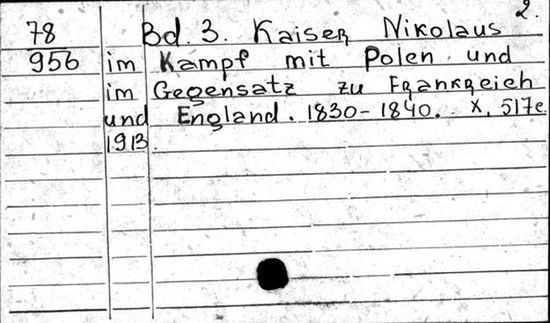 2.
78 Bd. 3. Kaiser Nikolaus
956 im Kampf mit Polen und
im Gegensatz zu Frankreich
und England. 1830-1840. X, 517 e
1913.